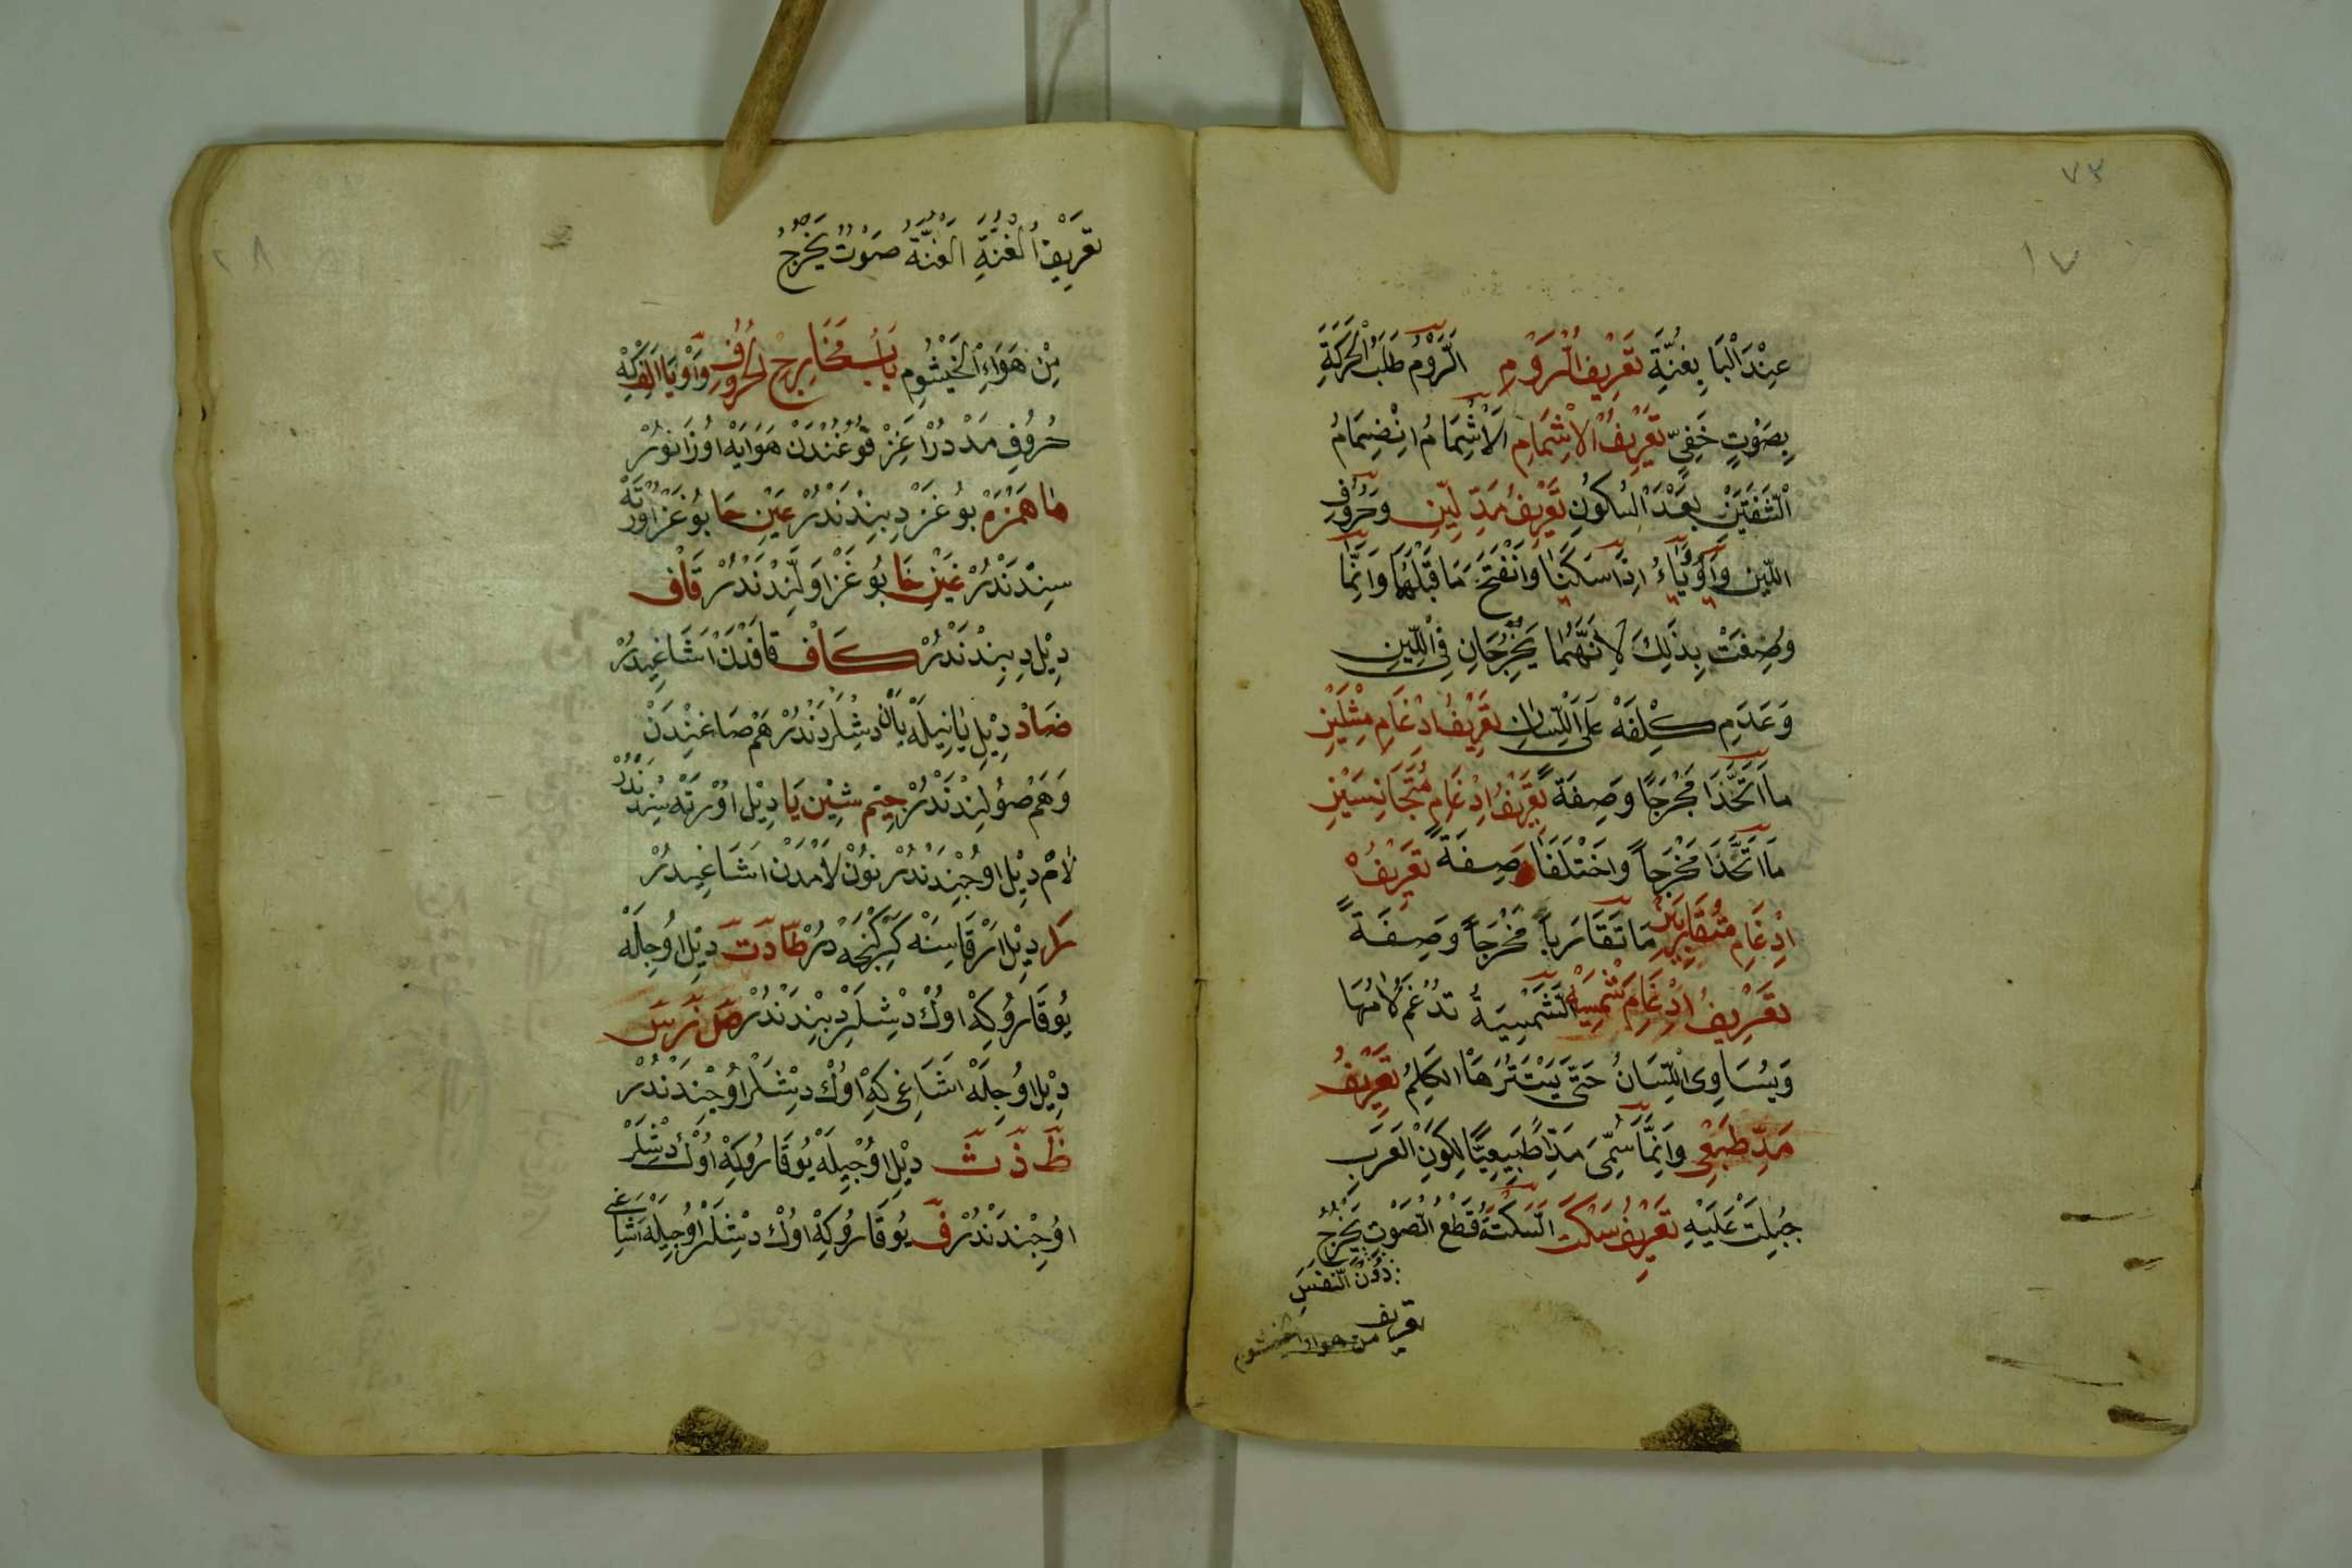 ٧٣
١٧
عِنْدَ الْبَاءِ بِغُنَّةٍ تَعْرِيفُ الرَّوْمِ الرَّوْمُ طَلَبُ الْحَرَكَةِ
بِصَوْتٍ خَفِيٍّ تَعْرِيفُ الْاِشْمَامِ الْاِشْمَامُ انْضِمَامُ
الشَّفَتَيْنِ بَعْدَ السُّكُونِ تَعْرِيفُ مَدِّ لِينٍ وَحُرُوفُ
اللِّينِ وَاوٌ يَاءٌ اِذَا سَكَنَتَا وَانْفَتَحَ مَا قَبْلَهُمَا وَاِنَّمَا
وُصِفَتْ بِذَلِكَ لِاَنَّهُمَا يَخْرُجَانِ فِي اللِّينِ
وَعَدَمِ كِلْفَةٍ عَلَى اللِّسَانِ تَعْرِيفُ ادْغَامِ مِثْلَيْنِ
مَا اتَّحَدَا مَخْرَجًا وَصِفَةً تَعْرِيفُ ادْغَامِ مُتَجَانِسَيْنِ
مَا اتَّحَدَا مَخْرَجاً وَاخْتَلَفَا صِفَةً تَعْرِيفُ
اِدْغَامِ مُتَقَارِبَيْنِ مَا تَقَارَبَا مَخْرَجاً وَصِفَةً
تَعْرِيفُ اِدْغَامِ شَمْسِيَّةِ الشَّمْسِيَّةُ تُدْغَمُ لَامُهَا
وَيُسَاوِى اللِّسَانُ حَتَّى يَسْتَتِرَهَا الكَلِمُ تَعْرِيفُ
مَدِّ طَبِيعِى وَاِنَّمَا سُمِّىَ مَدًّا طَبِيعِيًّا لِكَوْنِ الْعَرَبِ
جُبِلَتْ عَلَيْهِ تَعْرِيفُ سَكْتَ السَّكْتَةُ قَطْعُ الصَّوْتِ يَخْرُجُ
دُونَ النَّفَسِ
تعريف
من هواء الخيشوم
٢٨
تَعْرِيفُ الْغُنَّةِ الْغُنَّةُ صَوْتٌ يَخْرُجُ
مِنْ هَوَاءِ الْخَيْشُومِ بَابُ مَخَارِجِ الْحُرُوفِ وَاوْ يَا اَلِفْ كِه
حُرُوفِ مَدْدُرْ اغِزْ قُوغُنْدَنْ هَوَايَه اُوزَانُورْ
هَا هَمْزَه بُوغَزْ دِبِنْدَنْدُرْ عَيْن حَا بُوغَزْ اُورْتَه
سِنْدَنْدُرْ غَيْن خَا بُوغَزْ اَوَّلِنْدَنْدُرْ قَافْ
دِيْل دِبِنْدَنْدُرْ كَافْ قَافْدَنْ اَشَاغِيدُرْ
ضَادْ دِيْل يَانِيلَه يَانْ دِشْلَرْدَنْدُرْ هَمْ صَاغِنْدَنْ
وَهَمْ صُولِنْدَنْدُرْ جِيْم شِيْن يَا دِيْل اُورْتَه سِنْدَنْدُرْ
لَامْ دِيْل اُوجِنْدَنْدُرْ نُونْ لَامْدَنْ اَشَاغِيدُرْ
رَا دِيْل ارْقَاسِنَه كِيرْكِنْجَه دُرْ طَا دَ تَ دِيْل اُوجِلَه
يُوقَارُوكِه اُوكْ دِشْلَرْ دِبِنْدَنْدُرْ صَ زَ سَ
دِيْل اُوجِلَه اشَاغِى كِه اُوكْ دِشْلَرْ اُوجِنْدَنْدُرْ
ظَ ذَ ثَ دِيْل اُوجِيلَه يُوقَارُوكِه اُوكْ دِشْلَرْ
اُوجِنْدَنْدُرْ فَ يُوقَارُوكِه اُوكْ دِشْلَرْ اُوجِيلَه اَشَاغِى